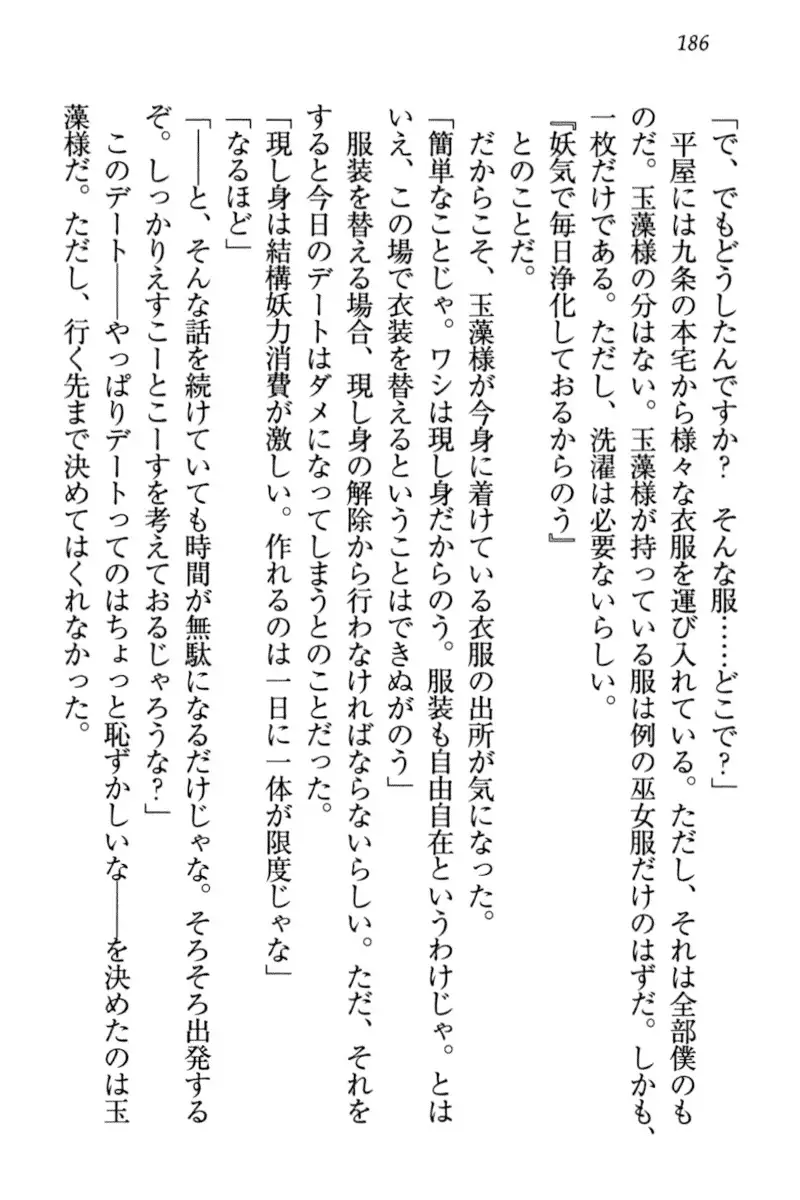 186
「で、でもどうしたんですか？　そんな服……どこで？」
　平屋には九条の本宅から様々な衣服を運び入れている。ただし、それは全部僕のも
のだ。玉藻様の分はない。玉藻様が持っている服は例の巫女服だけのはずだ。しかも、
一枚だけである。ただし、洗濯は必要ないらしい。
『妖気で毎日浄化しておるからのう』
　とのことだ。
　だからこそ、玉藻様が今身に着けている衣服の出所が気になった。
「簡単なことじゃ。ワシは現し身だからのう。服装も自由自在というわけじゃ。とは
いえ、この場で衣装を替えるということはできぬがのう」
　服装を替える場合、現し身の解除から行わなければならないらしい。ただ、それを
すると今日のデートはダメになってしまうとのことだった。
「現し身は結構妖力消費が激しい。作れるのは一日に一体が限度じゃな」
「なるほど」
「――と、そんな話を続けていても時間が無駄になるだけじゃな。そろそろ出発する
ぞ。しっかりえすこーとこーすを考えておるじゃろうな？」
　このデート――やっぱりデートってのはちょっと恥ずかしいな――を決めたのは玉
藻様だ。ただし、行く先まで決めてはくれなかった。